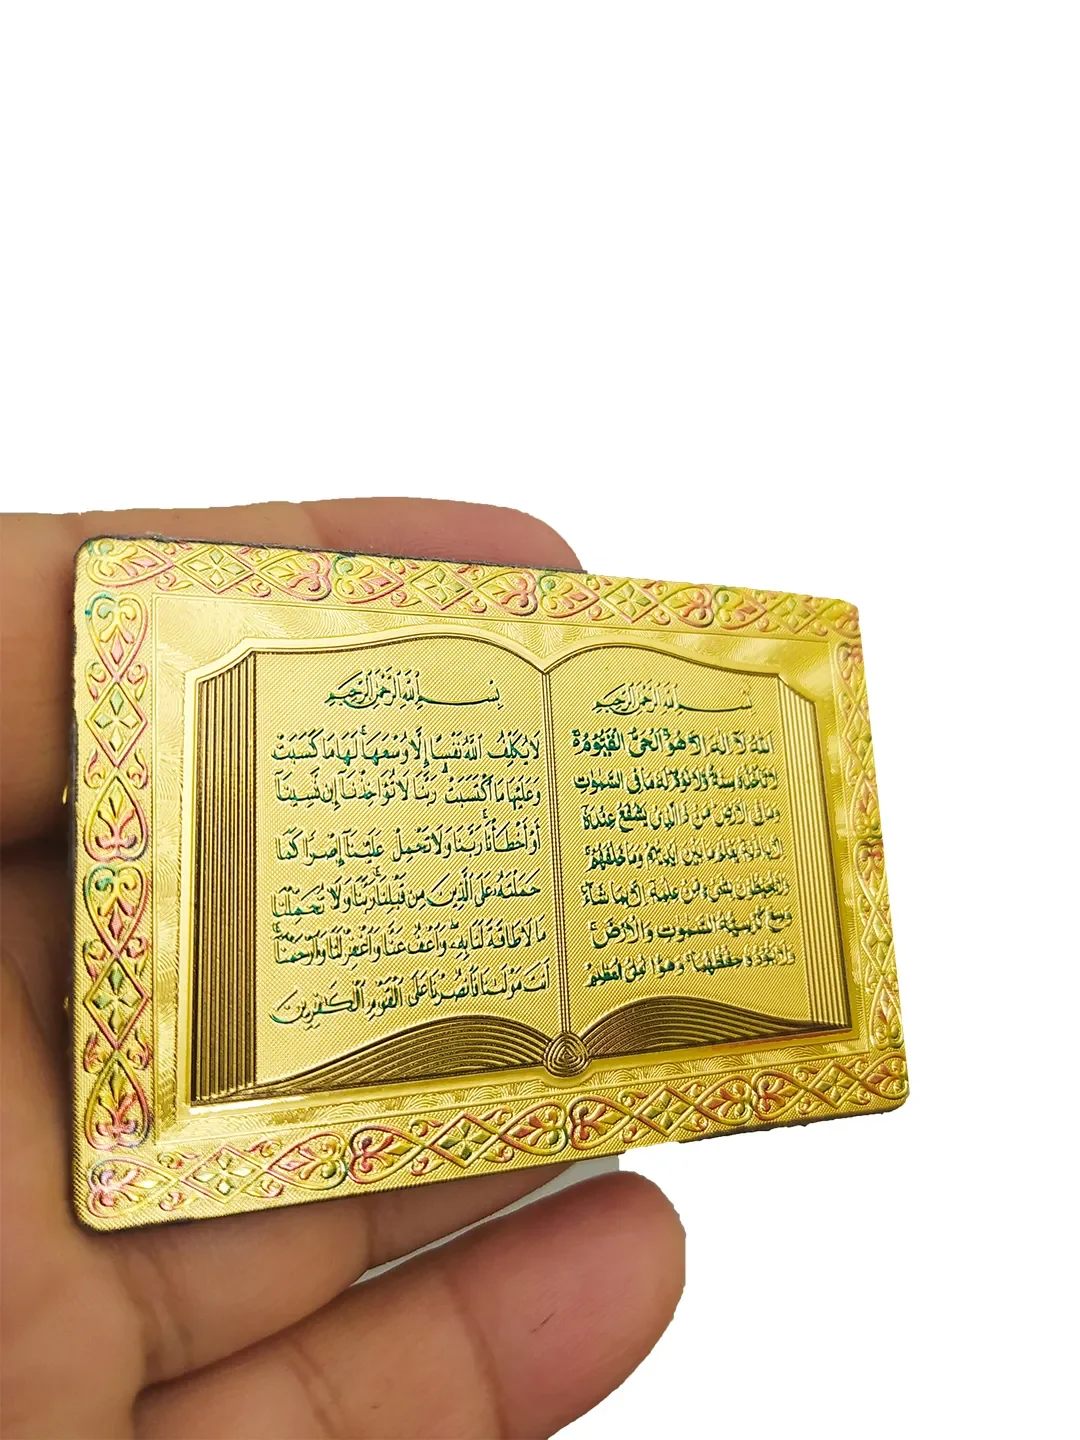 بِسْمِ اللهِ الرَّحْمٰنِ الرَّحِيمِ
اَللهُ لَآ اِلٰهَ اِلَّا هُوَ الْحَيُّ الْقَيُّوْمُ ۚ
لَا تَأْخُذُهٗ سِنَةٌ وَّلَا نَوْمٌ لَهٗ مَا فِي السَّمٰوٰتِ
وَمَا فِي الْاَرْضِ مَنْ ذَا الَّذِيْ يَشْفَعُ عِنْدَهٗ
اِلَّا بِاِذْنِهٖ يَعْلَمُ مَا بَيْنَ اَيْدِيْهِمْ وَمَا خَلْفَهُمْ ۚ
وَلَا يُحِيْطُوْنَ بِشَيْءٍ مِّنْ عِلْمِهٖٓ اِلَّا بِمَا شَآءَ
وَسِعَ كُرْسِيُّهُ السَّمٰوٰتِ وَالْاَرْضَ ۚ
وَلَا يَئُوْدُهٗ حِفْظُهُمَا ۚ وَهُوَ الْعَلِيُّ الْعَظِيْمُ
بِسْمِ اللهِ الرَّحْمٰنِ الرَّحِيمِ
لَا يُكَلِّفُ اللهُ نَفْسًا إِلَّا وُسْعَهَا ۚ لَهَا مَا كَسَبَتْ
وَعَلَيْهَا مَا اكْتَسَبَتْ ۗ رَبَّنَا لَا تُؤَاخِذْنَا إِنْ نَّسِينَا
أَوْ أَخْطَأْنَا ۚ رَبَّنَا وَلَا تَحْمِلْ عَلَيْنَا إِصْرًا كَمَا
حَمَلْتَهُ عَلَى الَّذِينَ مِنْ قَبْلِنَا ۚ رَبَّنَا وَلَا تُحَمِّلْنَا
مَا لَا طَاقَةَ لَنَا بِهِ ۖ وَاعْفُ عَنَّا وَاغْفِرْ لَنَا وَارْحَمْنَا ۚ
أَنْتَ مَوْلَانَا فَانْصُرْنَا عَلَى الْقَوْمِ الْكٰفِرِينَ